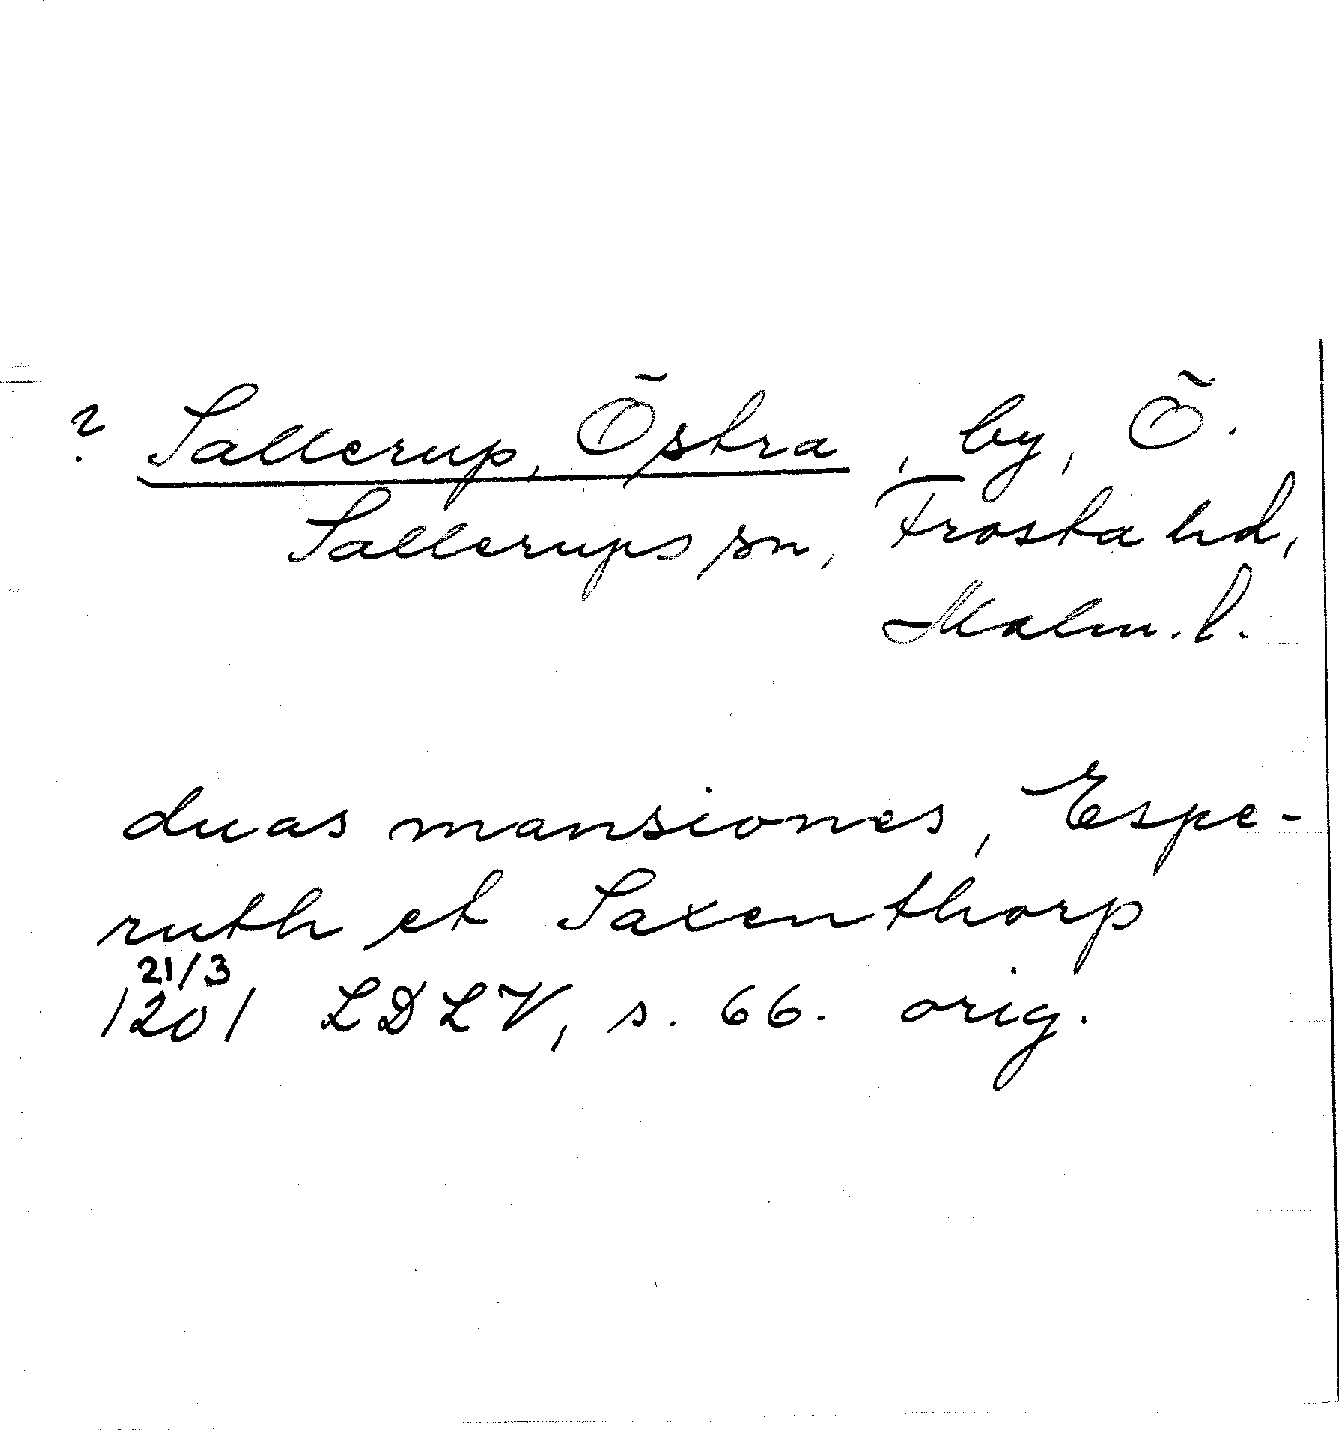 ? Sallerup, Östra, by, Ö.
Sallerups sn, Frosta hd,
Malm. l.
duas mansiones, Espe-
ruth et Saxenthorp
21/3
1201 LDLV, s. 66. orig.